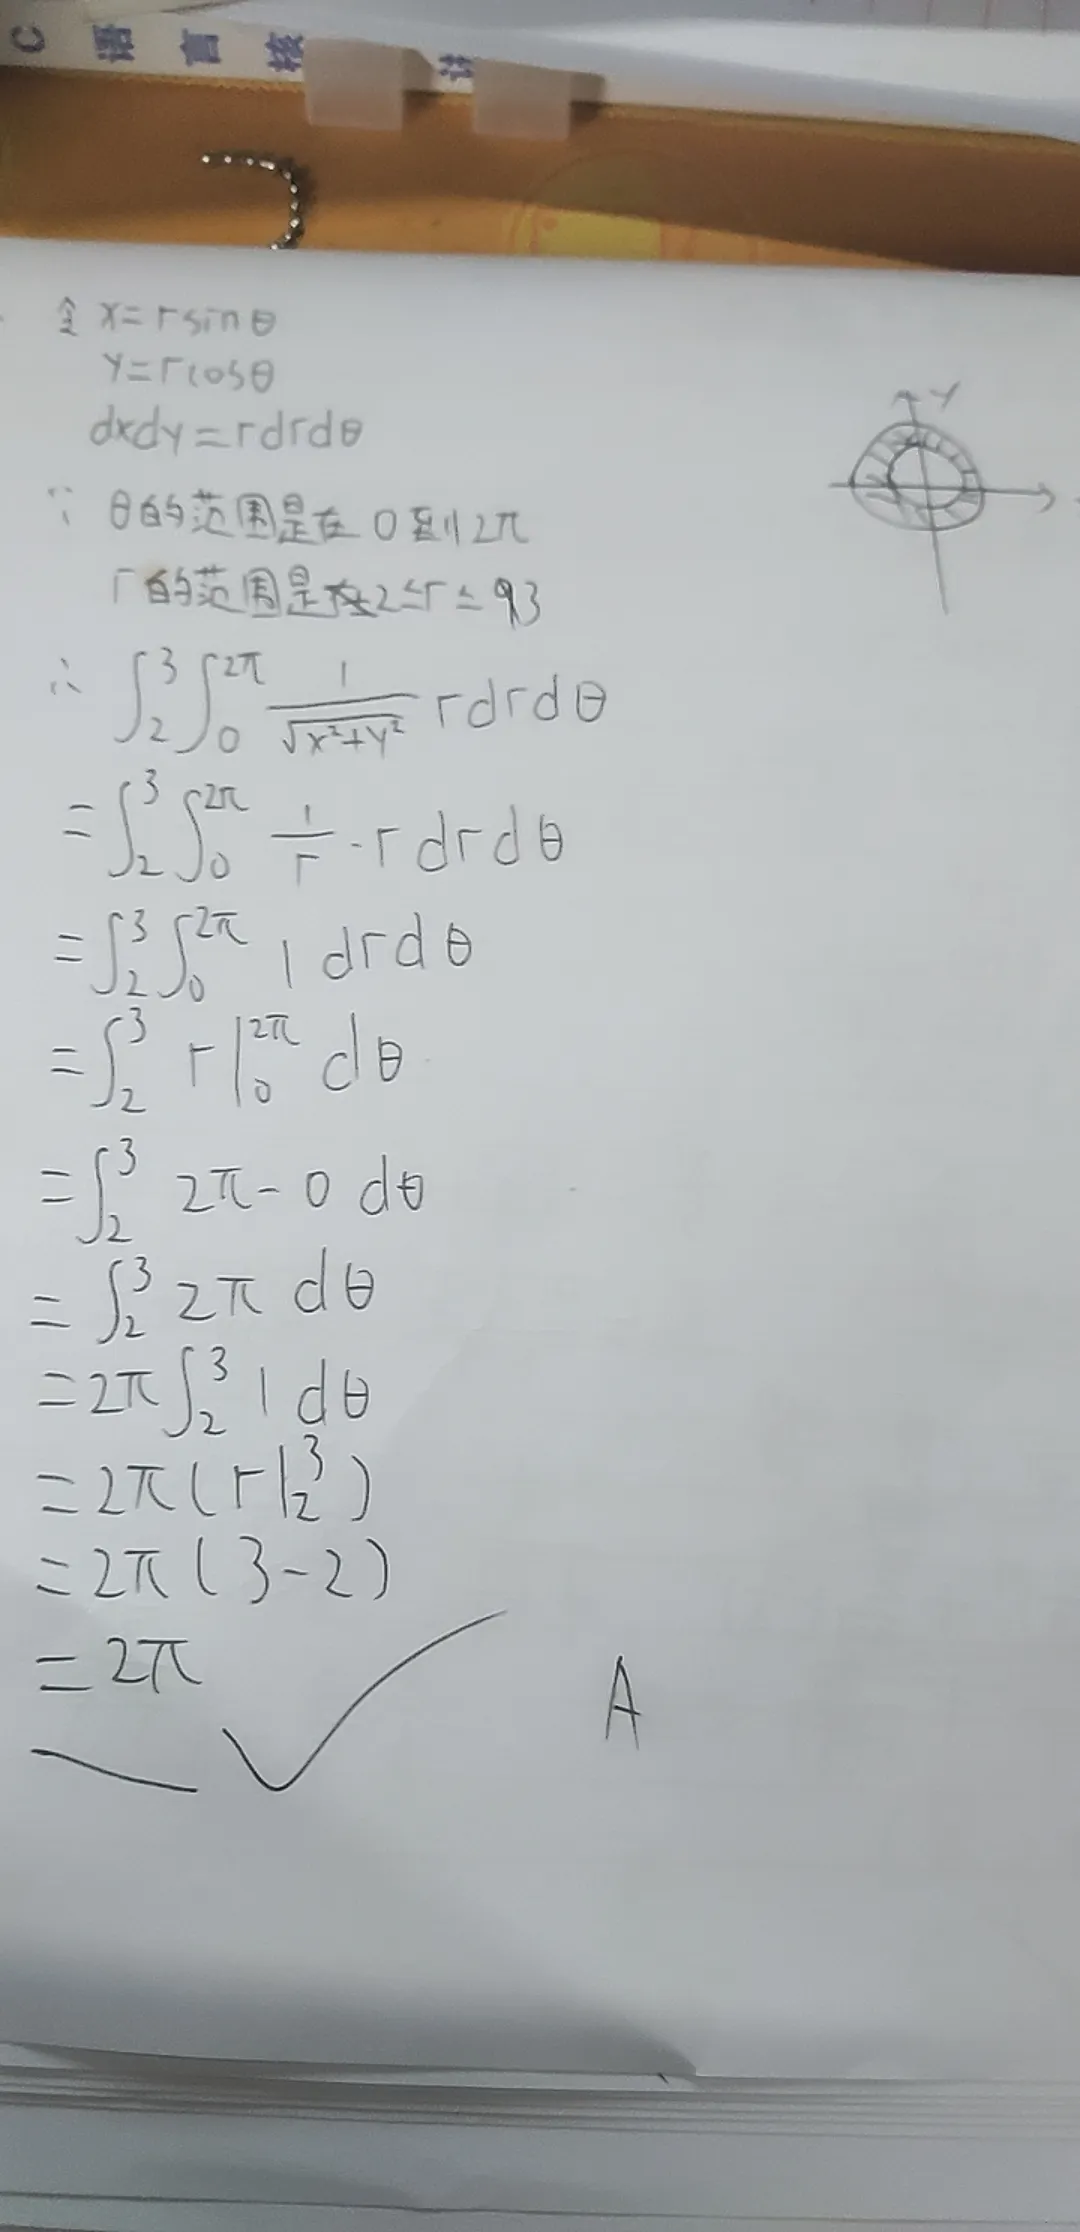 C语言核 计
令 x=rsinθ
y=rcosθ
dxdy=rdrdθ
Y
∵ θ的范围是在 0到2π
r的范围是在2≤r≤93
∴ ∫₂³∫₀²π 1/√(x²+y²) rdrdθ
=∫₂³∫₀²π 1/r·rdrdθ
=∫₂³∫₀²π 1drdθ
=∫₂³ r|₀²π dθ
=∫₂³ 2π-0 dθ
=∫₂³ 2π dθ
=2π∫₂³ 1dθ
=2π(r|₂³)
=2π(3-2)
=2π
A